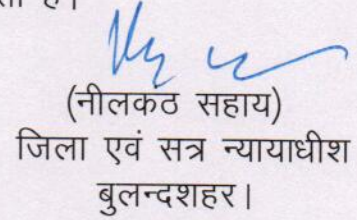 है।
(नीलकठ सहाय)
जिला एवं सत्र न्यायाधीश
बुलन्दशहर।